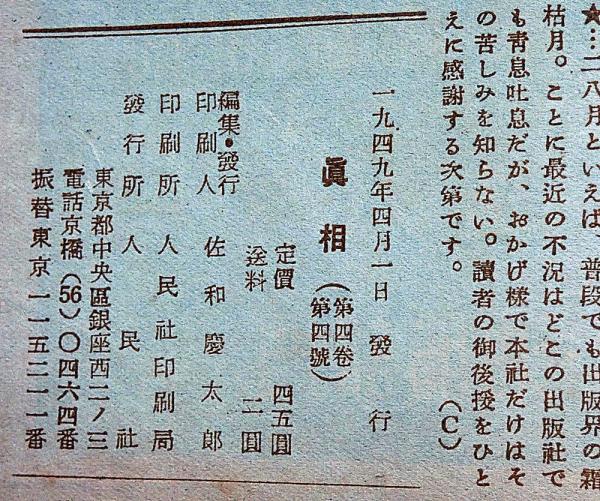 ★…二八月といえば、普段でも出版界の霜
枯月。ことに最近の不況はどこの出版社で
も靑息吐息だが、おかげ様で本社だけはそ
の苦しみを知らない。讀者の御後援をひと
えに感謝する次第です。　　　（C）
一九四九年四月一日　發　行
眞　相（第四卷 第四號）
定價　四五圓
送料　二圓
編集・發行
印刷人　佐和慶太郎
印刷所　人民社印刷局
發行所　人民社
東京都中央區銀座西二ノ三
電話京橋（56）〇四六四番
振替東京一一五二一一番